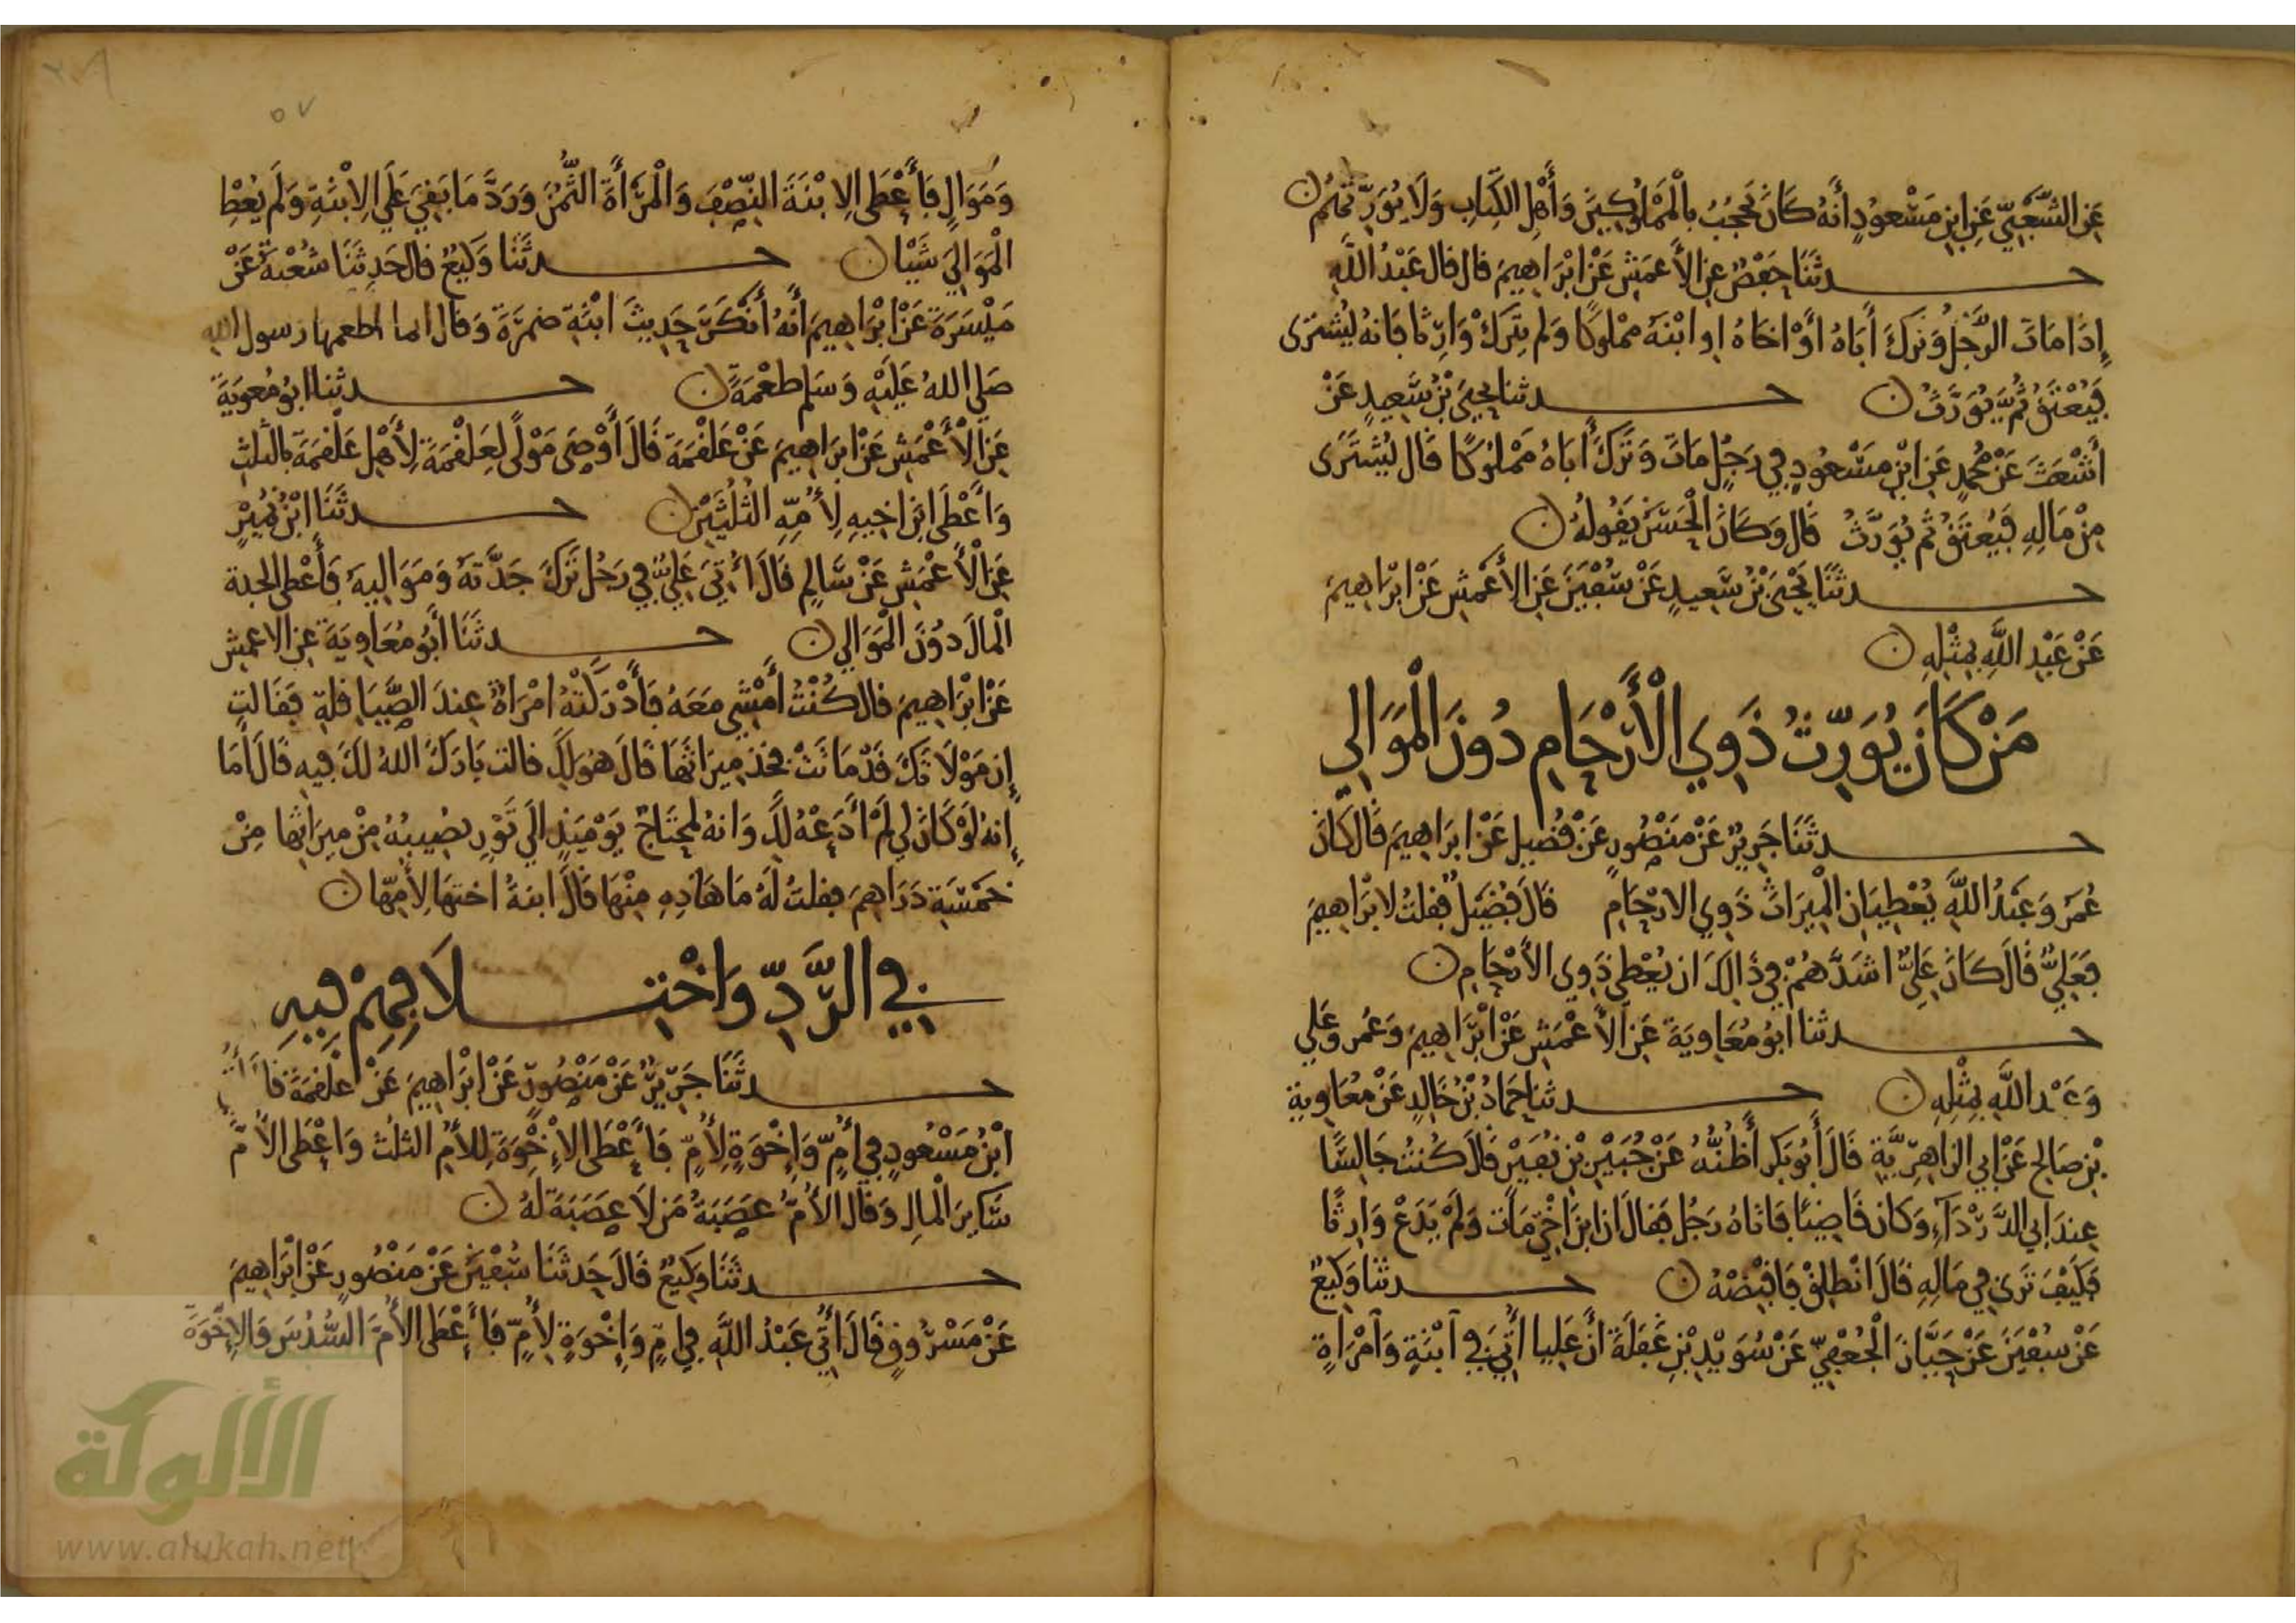 عَنِ الشَّعْبِيِّ عَنِ ابْنِ مَسْعُودٍ أَنَّهُ كَانَ يَحْجُبُ بِالْمَمْلُوكِينَ وَأَهْلِ الْكِتَابِ وَلَا يُوَرِّثُهُمْ
حدثَنَا حَفْصٌ عنِ الأَعمَشِ عَنْ ابْرَاهِيمَ قال قال عَبْدُ اللَّهِ
إِذَا مَاتَ الرَّجُلُ وَتَرَكَ أَبَاهُ أَوْ اخَاهُ او ابْنَهُ مملوكًا وَلم يترك وَارِثا فَانهُ يُشترَى
فَيُعْتَقُ ثُمَّ يُوَرَّثُ حدثنا يحيَى بْنُ سَعِيدٍ عَنْ
أَشْعَثَ عَنْ مُحمدٍ عَنِ ابْنِ مَسْعُودٍ فِي رَجُلٍ مَاتَ وَتَرَكَ أَبَاهُ مَمْلُوكًا قَال يُشْتَرَى
مِنْ مَالِهِ فَيُعتَقُ ثم يُوَرَّثُ قَال وَكَانَ الْحَسَن يَقُولهُ
حدثَنَا يَحْيَى بْنُ سَعِيدٍ عَنْ سُفْيَنَ عَنِ الأَعْمَشِ عَنْ ابْرَاهِيمَ
عَنْ عَبْدِ اللَّهِ بِمثْلِهِ
مَنْ كَانَ يُوَرِّثُ ذَوِي الْأَرْحَامِ دُونَ الْمَوَالِي
حدثَنَا جَرِيرٌ عَنْ مَنْصُورٍ عَنْ فُضَيلٍ عَنْ ابرَاهِيمَ قَال كَانَ
عُمَرَ وَعَبْدُ اللَّهِ يُعْطِيَانِ الْمِيرَاثَ ذَوِي الارْحَامِ قَالَ فُضَيْلٌ فَقلتُ لابْرَاهِيمَ
فَعَلِيٌّ قَالَ كَانَ عَلِيٌّ اشَدَّهُمْ فِي ذَالِكَ ان يُعْطِيَ ذَوِي الأَرْحَامِ
حدثنا ابُو مُعَاويَةَ عَنِ الأَعْمَشِ عَنْ ابْرَاهِيمَ وَعُمر وَعَلي
وَعَبْد اللَّهِ بِمِثْلِهِ حدثنا حَمادُ بْنُ خَالِدٍ عَنْ مُعَاوية
بْنِ صَالح عَنْ ابِي الزاهِرِيَّةِ قَالَ أَبُو بَكرٍ أَظُنُّهُ عَنْ جُبَيْرِ بْنِ نُفَيْرٍ قَالَ كُنتُ جَالسًا
عِندَ ابِي الدَّرْدَآءِ وَكَان قَاضِيًا فَاتَاهُ رَجُل فقَالَ ان ابْنَ اخِي مَاتَ وَلَمْ يَدَعْ وَارِثًا
فَكَيْفَ تَرَى فِي مَالِهِ قَالَ انْطَلِقْ فَاقْبِضْهُ حدثنا وَكِيعٌ
عَنْ سُفْيَنَ عَنْ حَيَّانَ الْجُعْفِيِّ عَنْ سُوَيْدِ بْنِ غَفَلَةَ أنَّ عَليا أُتِيَ فِي آبْنَةٍ وَآمْرَاةٍ
٥٧
وَمَوَالٍ فَأَعْطَى الابْنَةَ النِّصْفَ وَالْمَرْأَةَ الثُّمُنَ وَرَدَّ مَا بَقِيَ عَلَى الِابْنَةِ وَلَمْ يُعْطِ
الْمَوَالِيَ شَيْا حدثَنَا وَكِيعٌ قال حَدثَنَا شُعْبَةُ عَنْ
مَيْسَرَةَ عَنْ ابْرَاهِيمَ أَنَّهُ أَنْكَرَ حَدِيثَ ابْنَةِ ضمرَةَ وَقال انما اطعمها رسول الله
صَلى اللهُ عَلَيْهِ وَسَلم طعْمَةً حدثنا ابُو مُعويَةَ
عَنِ الْأَعْمَشِ عَنْ ابرَاهِيمَ عَنْ عَلقمَةَ قَالَ أَوْصَى مَوْلًى لِعَلقَمَةَ لِأَهْلِ عَلقَمَةَ بالثلثِ
وَأَعْطَى ابْنَ اخِيهِ لِأُمِّهِ الثُلُثَيْنِ حدثَنَا ابْنُ نُمَيْرٍ
عَنِ الْأَعْمَشِ عَنْ سَالِمٍ قَالَ أُتِيَ عَلِيٌّ فِي رَجُل تَرَكَ جَدَّتَهُ وَمَوَاليَهُ فَأَعْطى الجدة
الْمالَ دوُنَ الْمَوَالِي حدثَنَا أَبُو مُعَاوِيَةَ عنِ الاعمش
عَنْ ابْرَاهِيمَ قال كُنْتُ أَمْشِي مَعَهُ فَأَدْرَكَتْهُ امْرَاةٌ عِندَ الصَّيَاقلةِ فَقَالت
إِن مَوْلَاتَكَ قَدْ مَاتَتْ فخذ مِيرَاثَهَا قَالَ هُوَ لكِ قالت بَارَكَ اللهُ لَكَ فِيهِ قَالَ أَمَا
إِنهُ لَوْ كَانَ لِي لَمْ أَدَعْهُ لَكِ وَانهُ لمحتَاجٌ يَوْمَيَذٍ الَى تَوْرٍ يصُيبُهُ مِنْ ميرَاثها مِنْ
خمْسَةِ دَرَاهِمَ فقلتُ لَهُ مَا هَاذِهِ مِنْهَا قَالَ ابنةُ اختهَا لِأُمّها
فِي الرَّدِّ وَاخْتِلَافِهِمْ فِيهِ
حدثَنَا جَرِيرٌ عَنْ مَنْصُورٍ عَنْ ابْرَاهِيمَ عَنْ عَلقَمَةَ
ابْنُ مَسْعُودٍ فِي أُمٍّ وَإِخْوَةٍ لِأُمٍّ فَأَعْطَى الإِخْوَةَ لِلأُمِّ الثلُث وَاعْطَى الأُمَّ
سَايِرَ الْمالِ وَقال الأُمُّ عصَبَةُ مَن لَا عَصَبَةَ لهُ
حدثَنَا وَكِيعٌ قَالَ حَدثَنَا سُفْيَنُ عَنْ مَنْصُورٍ عَنْ ابْرَاهِيمَ
عَنْ مَسْرُوقٍ قَالَ أُتِيَ عَبْدُ اللَّهِ فِي امٍّ وَإِخْوَةٍ لِأُمٍّ فَأَعْطَى الأُمَّ السُّدُسَ وَالإِخْوَةَ
الألوكة
www.alukah.net